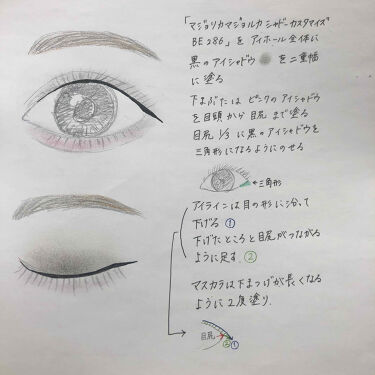 「マジョリカマジョルカ シャドーカスタマイズ
BE286」を アイホール全体に
黒のアイシャドウ を二重幅
に塗る
下まぶたは ピンクのアイシャドウ
を目頭から目尻まで塗る
目尻1/3に黒のアイシャドウを
三角形になるようにのせる
←三角形
アイラインは目の形に沿って
下げる ①
下げたところと目尻がつながる
ように足す. ②
マスカラは下まつげが長くなる
ように2度塗り.
目尻
②①